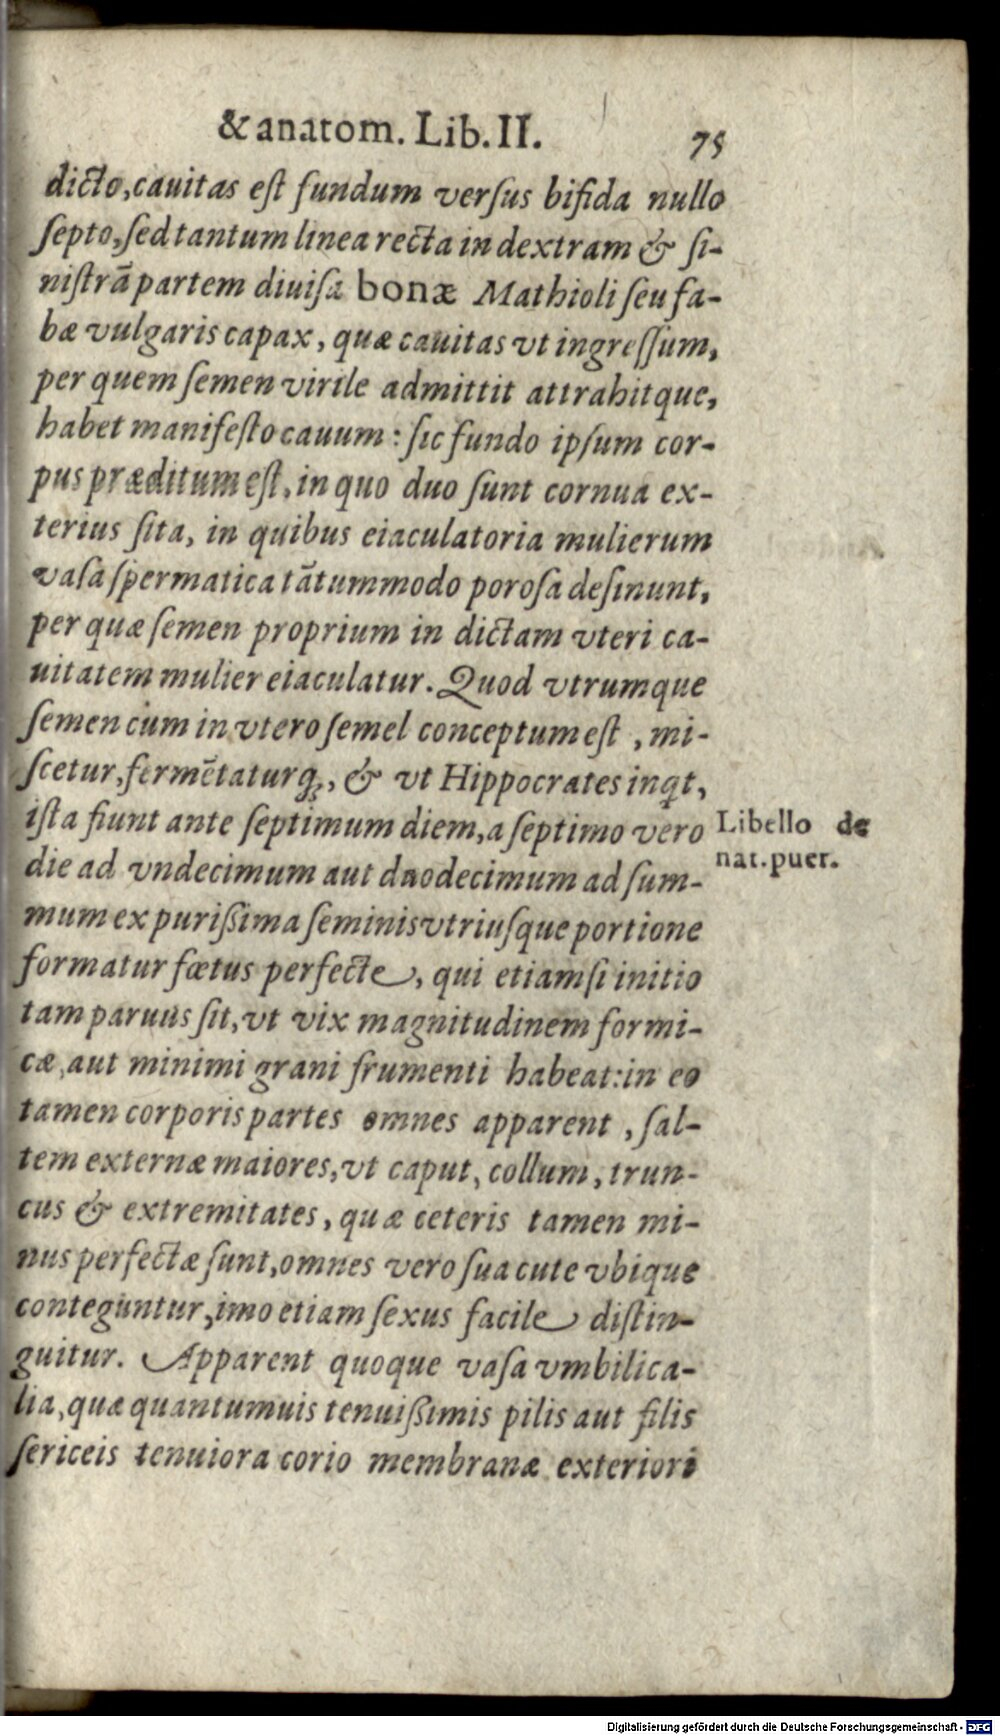 & anatom. Lib. II. 75
dicto, cauitas est fundum versus bifida nullo
septo, sed tantum linea recta in dextram & si-
nistrã partem diuisa bonæ Mathioli seu fa-
bæ vulgaris capax, quæ cauitas vt ingressum,
per quem semen virile admittit attrahitque,
habet manifesto cauum: sic fundo ipsum cor-
pus præditum est, in quo duo sunt cornua ex-
terius sita, in quibus eiaculatoria mulierum
vasa spermatica tãtummodo porosa desinunt,
per quæ semen proprium in dictam vteri ca-
uitatem mulier eiaculatur. Quod vtrumque
semen cum in vtero semel conceptum est, mi-
scetur, fermẽtaturq;, & vt Hippocrates inqt,
ista fiunt ante septimum diem, a septimo vero
Libello de
nat. puer.
die ad vndecimum aut duodecimum ad sum-
mum ex purißima seminis vtriusque portione
formatur fœtus perfecte, qui etiamsi initio
tam paruus sit, vt vix magnitudinem formi-
cæ, aut minimi grani frumenti habeat: in eo
tamen corporis partes omnes apparent, sal-
tem externæ maiores, vt caput, collum, trun-
cus & extremitates, quæ ceteris tamen mi-
nus perfectæ sunt, omnes vero sua cute vbique
conteguntur, imo etiam sexus facile distin-
guitur. Apparent quoque vasa vmbilica-
lia, quæ quantumuis tenuißimis pilis aut filis
sericeis tenuiora corio membranæ exteriori
Digitalisierung gefördert durch die Deutsche Forschungsgemeinschaft - DFG